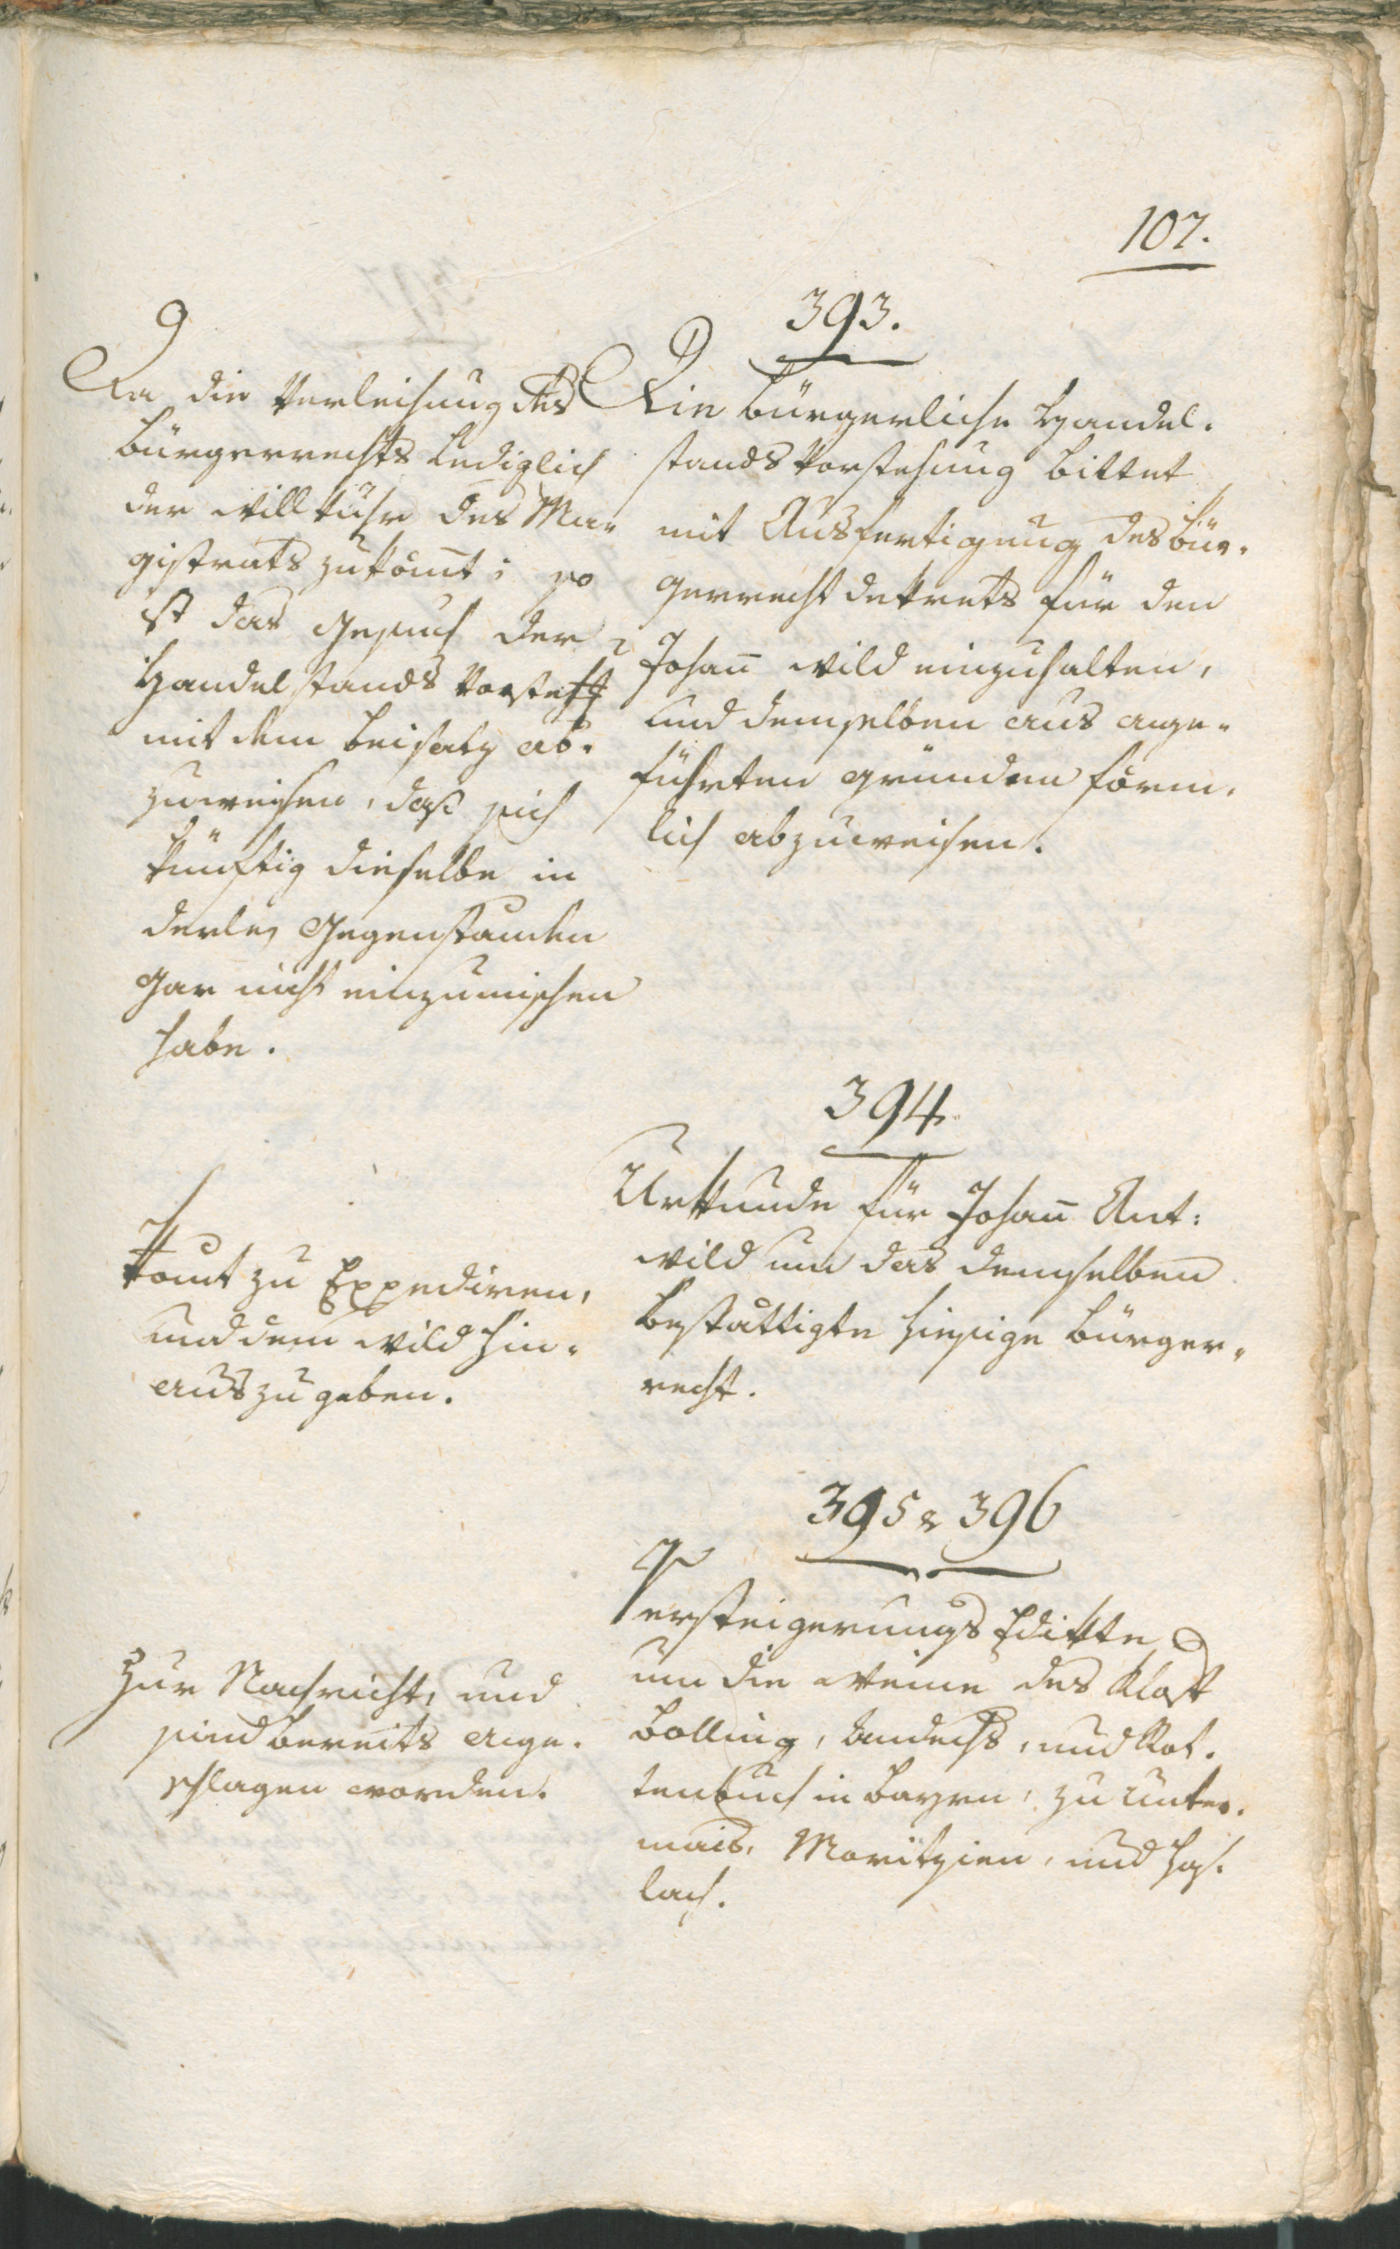 107.
393.
Da die Verleihung des
Bürgerrechts lediglich
der Willkühr des Ma-
gistrats zukom̅t; so
ist das Gesuch der
Handelstands Vorsteh
mit dem Beisatz ab-
zuweisen, daß sich
künftig dieselbe in
derley Gegenstanden
gar nicht einzumischen
habe.
Die bürgerliche Handel-
stands Vorstehung bittet
mit Ausfertigung des Bür-
gerrecht dekrets für den
Johan̅ Wild einzuhalten,
und demselben aus ange-
führten Gründen förm-
lich abzuweisen.
394.
Kom̅t zu Expediren,
und dem Wild hin-
auszugeben.
Urkunde für Johan̅ Ant:
Wild um das demselben
bestättigte hiesige Bürger-
recht.
395 & 396
Zur Nachricht, und
sind bereits ange-
schlagen worden.
Versteigerungs Edikte
um die Weine des Klost
Bolling, Andechs, und Rot-
tenbuch in Bayrn, zu Unter-
mais, Moritzien, und Has-
lach.